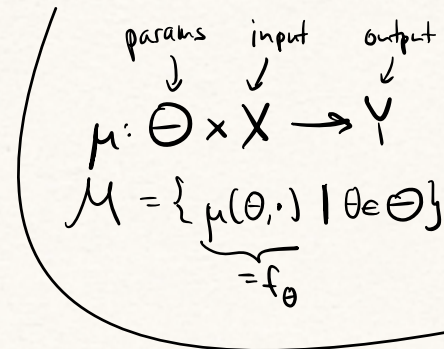 params input output
μ: Θ × X → Y
M = { μ(θ,·) | θ∈Θ}
= f_θ